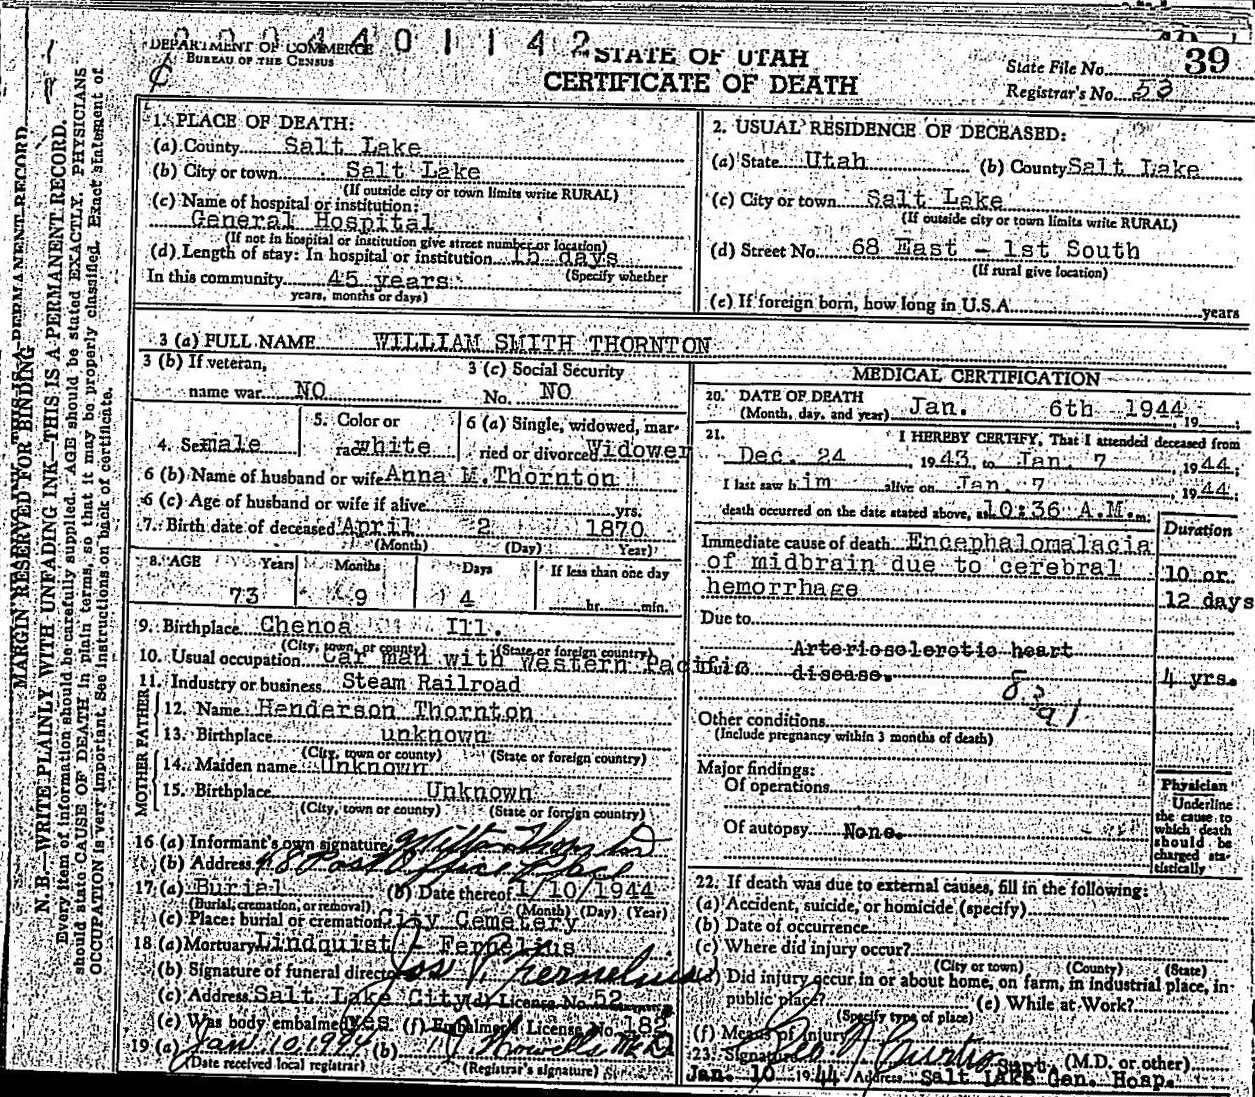 0 0 4 4 0 1 1 4 2
DEPARTMENT OF COMMERCE
BUREAU OF THE CENSUS
STATE OF UTAH
CERTIFICATE OF DEATH
State File No. 39
Registrar's No. 53
MARGIN RESERVED FOR BINDING
N. B.—WRITE PLAINLY, WITH UNFADING INK—THIS IS A PERMANENT RECORD.
Every item of information should be carefully supplied. AGE should be stated EXACTLY. PHYSICIANS
should state CAUSE OF DEATH in plain terms, so that it may be properly classified. Exact statement of
OCCUPATION is very important. See instructions on back of certificate.
1. PLACE OF DEATH:
(a) County Salt Lake
(b) City or town Salt Lake
(If outside city or town limits write RURAL)
(c) Name of hospital or institution:
General Hospital
(If not in hospital or institution give street number or location)
(d) Length of stay: In hospital or institution 15 days
(Specify whether
In this community 45 years
years, months or days)
2. USUAL RESIDENCE OF DECEASED:
(a) State Utah (b) County Salt Lake
(c) City or town Salt Lake
(If outside city or town limits write RURAL)
(d) Street No. 68 East - 1st South
(If rural give location)
(e) If foreign born, how long in U.S.A. years
3 (a) FULL NAME WILLIAM SMITH THORNTON
3 (b) If veteran, 3 (c) Social Security
name war NO No. NO
4. Sex male 5. Color or race white 6 (a) Single, widowed, married or divorced Widower
6 (b) Name of husband or wife Anna M. Thornton
6 (c) Age of husband or wife if alive yrs.
7. Birth date of deceased April 2 1870
(Month) (Day) Year)
8. AGE Years Months Days If less than one day
73 9 4 hr. min.
9. Birthplace Chenoa Ill.
(City, town, or county) (State or foreign country)
10. Usual occupation Car man with Western Pacific
11. Industry or business Steam Railroad
FATHER
12. Name Henderson Thornton
13. Birthplace unknown
(City, town or county) (State or foreign country)
MOTHER
14. Maiden name Unknown
15. Birthplace Unknown
(City, town or county) (State or foreign country)
16 (a) Informant's own signature Thornton
(b) Address Post Office Place
17. (a) Burial (b) Date thereof 1/10/1944
(Burial, cremation, or removal) (Month) (Day) (Year)
(c) Place: burial or cremation City Cemetery
18 (a) Mortuary Lindquist - Fernelius
(b) Signature of funeral director Jos P. Fernelius
(c) Address Salt Lake City (d) License No. 52
(e) Was body embalmed Yes (f) Embalmer's License No. 182
19 (a) Jan 10, 1944 (b) Howells M.D.
(Date received local registrar) (Registrar's signature)
MEDICAL CERTIFICATION
20. DATE OF DEATH
(Month, day, and year) Jan. 6th 1944, 19
21. I HEREBY CERTIFY, That I attended deceased from
Dec. 24, 1943, to Jan. 7, 1944;
I last saw him alive on Jan. 7, 1944;
death occurred on the date stated above, at 10:36 A.M. m.
Duration
Immediate cause of death Encephalomalacia
of midbrain due to cerebral
hemorrhage
10 or
12 days
Due to
Arteriosclerotic heart
Due to disease. 4 yrs.
83a1
Other conditions
(Include pregnancy within 3 months of death)
Major findings:
Of operations
Of autopsy None.
Physician
Underline
the cause to
which death
should be
charged sta-
tistically
22. If death was due to external causes, fill in the following:
(a) Accident, suicide, or homicide (specify)
(b) Date of occurrence
(c) Where did injury occur?
(City or town) (County) (State)
(d) Did injury occur in or about home, on farm, in industrial place, in
public place? (e) While at Work?
(Specify type of place)
(f) Means of Injury
23. Signature N Curtis Supt. (M.D. or other)
Jan. 10 1944 Address Salt Lake Gen. Hosp.